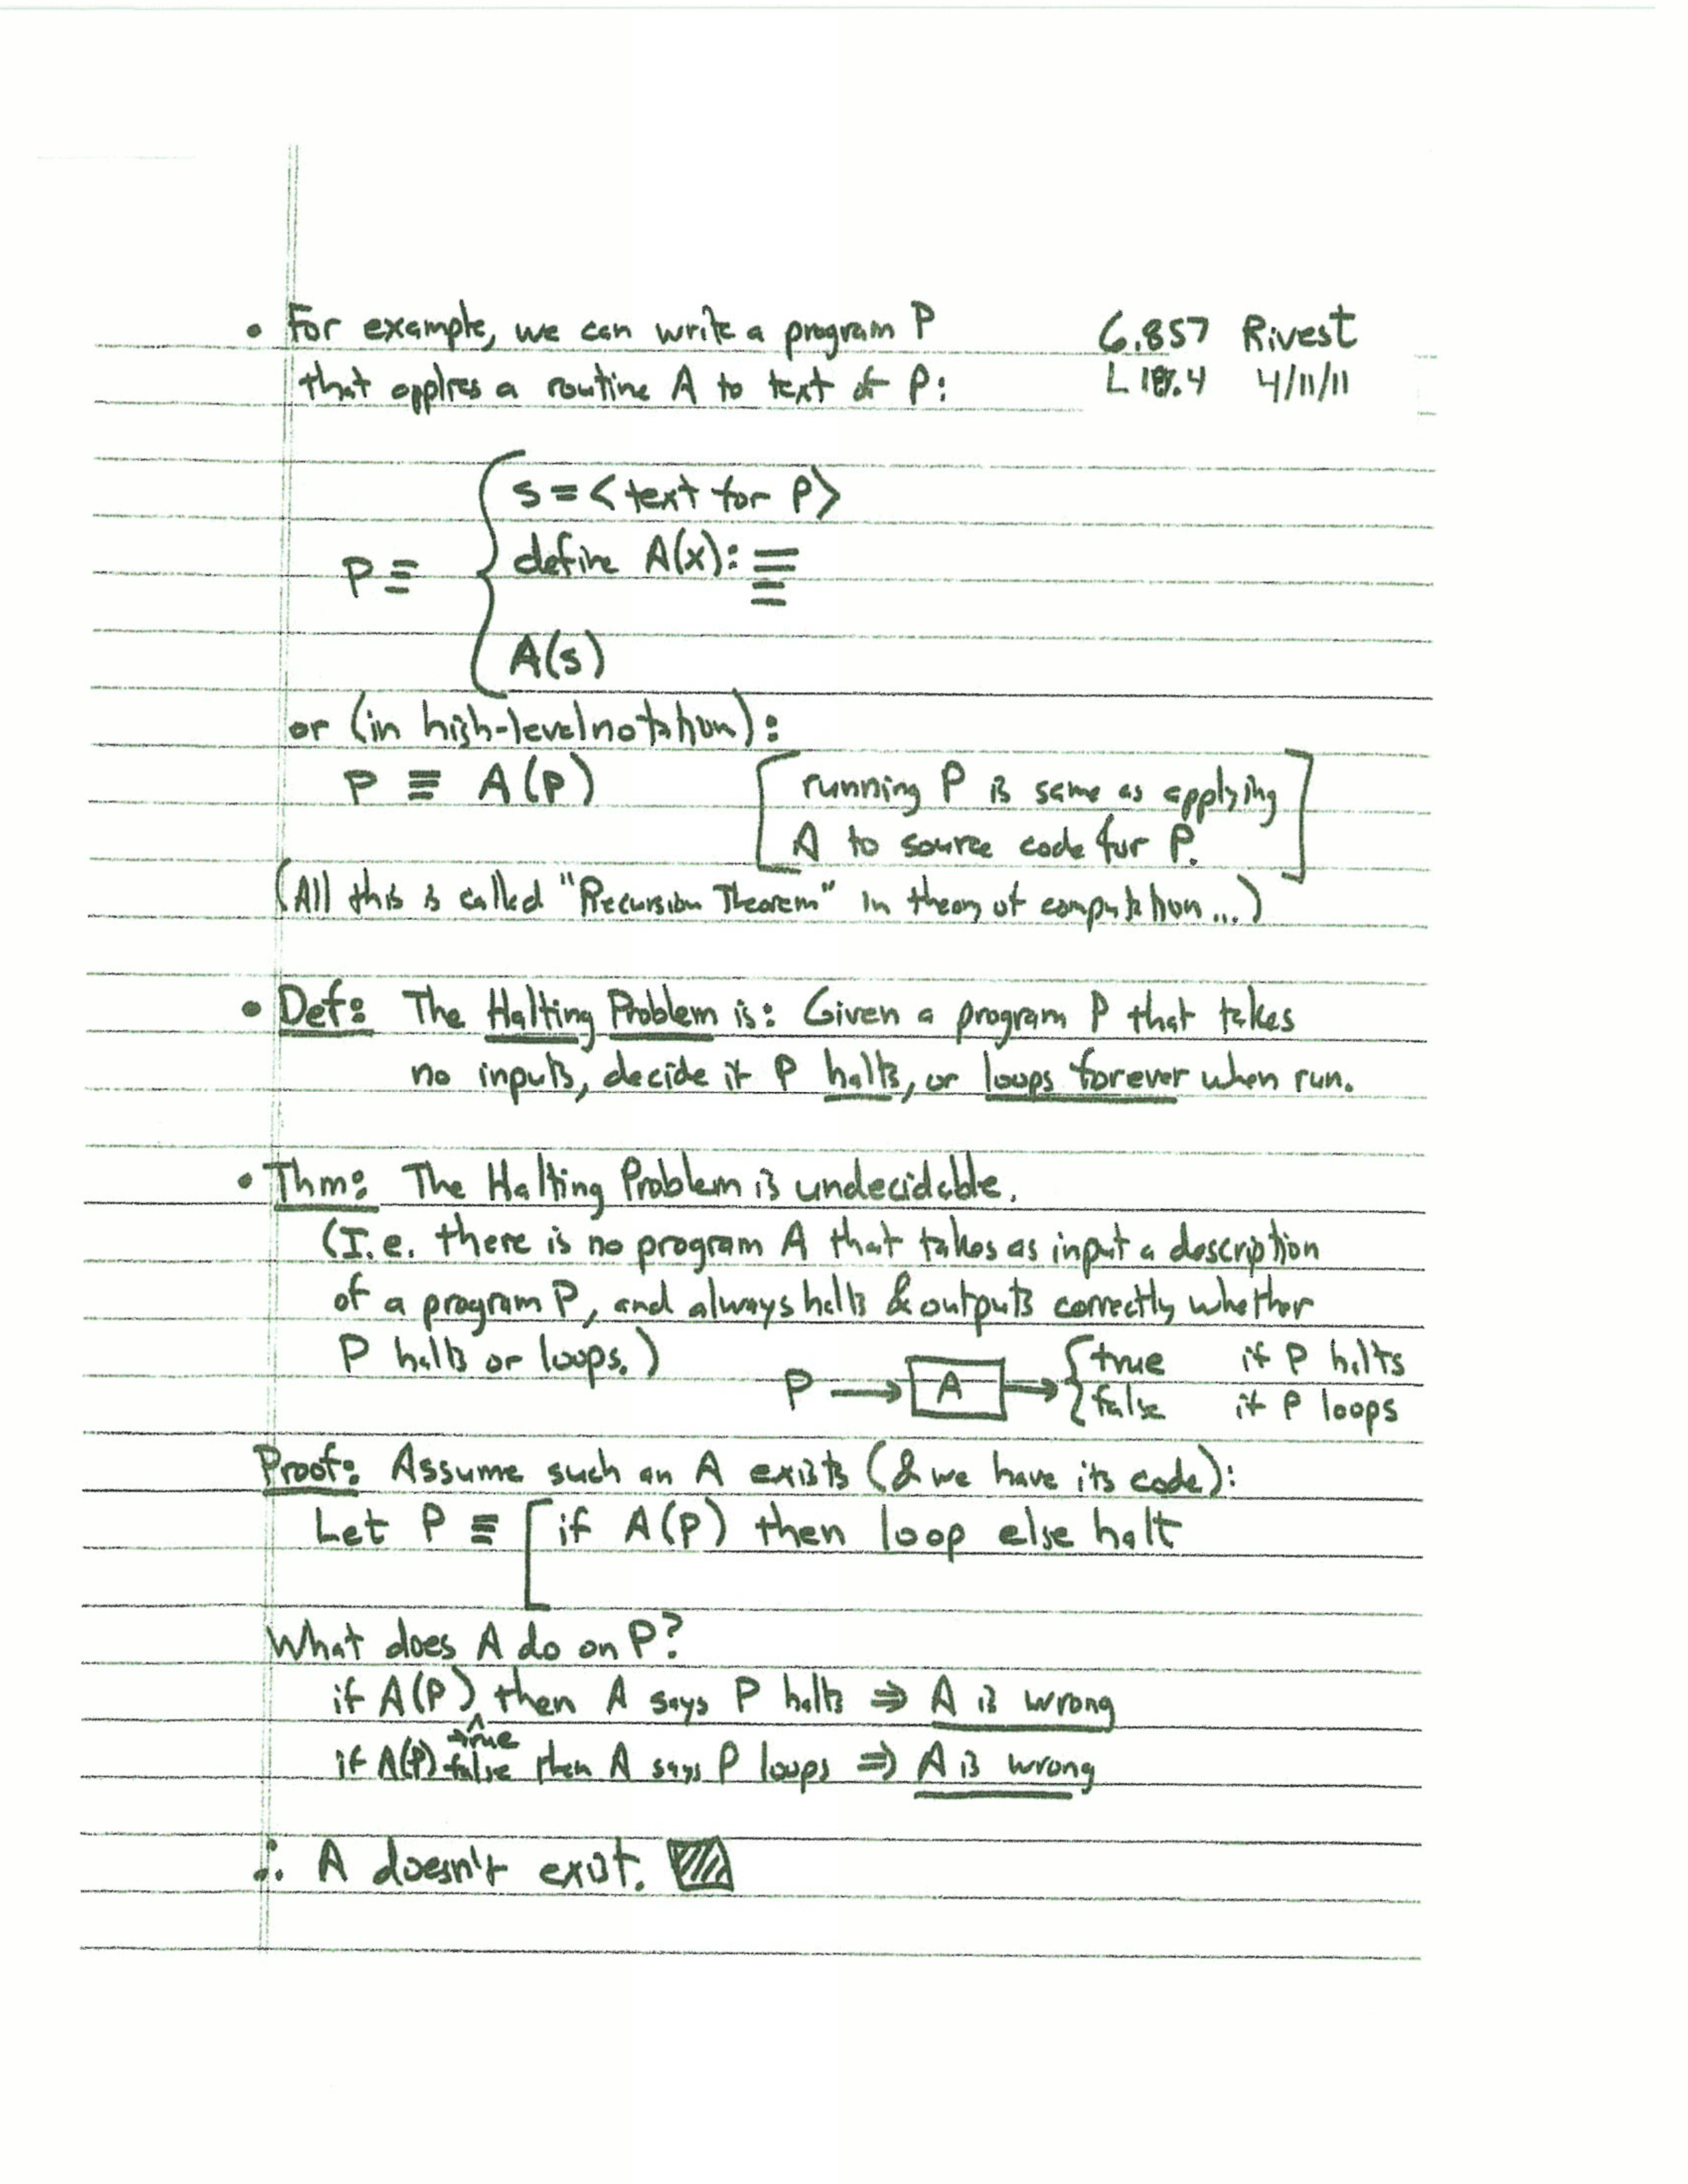 • For example, we can write a program P
6.857 Rivest
that applies a routine A to text of P:
L 18.4 4/11/11
s = <text for P>
define A(x):
P ≡
A(s)
or (in high-level notation):
P ≡ A(P)
[running P is same as applying
A to source code for P.]
(All this is called "Recursion Theorem" in theory of computation...)
• Def: The Halting Problem is: Given a program P that takes
no inputs, decide if P halts, or loops forever when run.
• Thm: The Halting Problem is undecidable.
(I.e. there is no program A that takes as input a description
of a program P, and always halts & outputs correctly whether
P halts or loops.)
P → A → { true if P halts
false if P loops
Proof: Assume such an A exists (& we have its code):
Let P ≡ [ if A(P) then loop else halt
What does A do on P?
if A(P) ^true then A says P halts ⇒ A is wrong
if A(P) false then A says P loops ⇒ A is wrong
∴ A doesn't exist. ▨